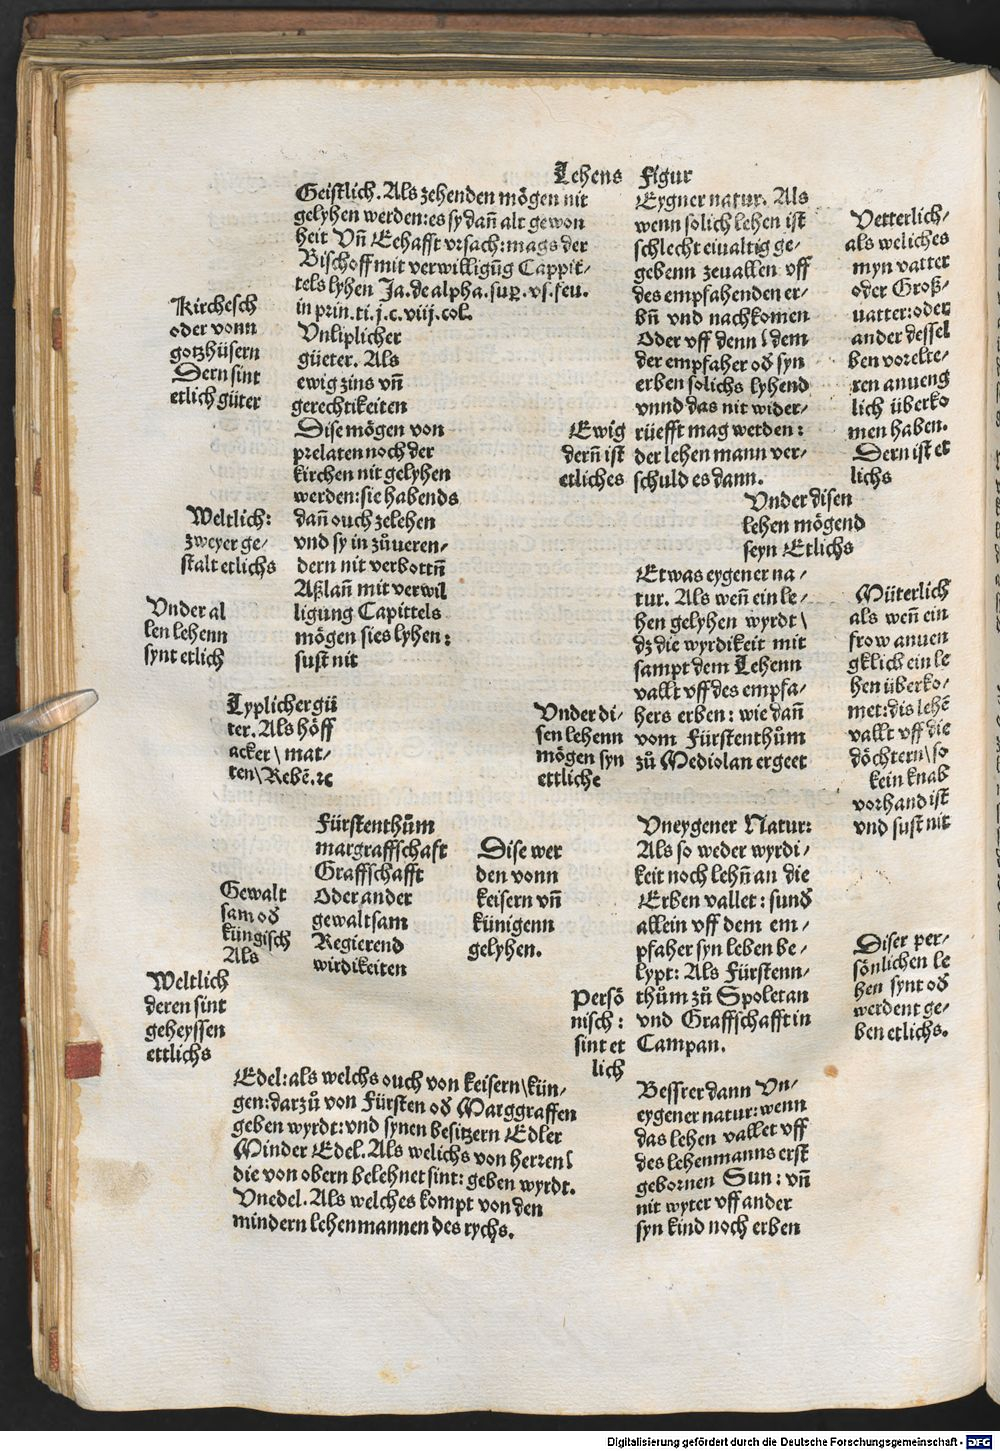 Lehens Figur
Geistlich. Als zehenden mögen nit
gelyhen werden: es sy dañ alt gewon
heit Vñ Ehafft vrsach: mags der
Bischoff mit verwilligūg Cappit-
tels lyhen Ja. de alpha. sup. vs. feu.
in prin. ti. j. c. viij. col.
Kirchesch
oder vonn
gotzhüsern
Dern sint
etlich güter
Vnliplicher
güeter. Als
ewig zins vñ
gerechtikeiten
Dise mögen von
prelaten noch der
kirchen nit gelyhen
werden: sie habends
dañ ouch zelehen
vnd sy in zůueren-
dern nit verbottñ
Aßlañ mit verwil
ligung Capittels
mögen sies lyhen:
sust nit
Weltlich:
zweyer ge-
stalt etlichs
Vnder al
len lehenn
synt etlich
Lyplicher gü
ter. Als höff
acker \ mat-
ten \ Rebē. ꝛc
Fürstenthům
margraffschaft
Graffschafft
Oder ander
gewaltsam
Regierend
wirdikeiten
Gewalt
sam oð
küngisch
Als
Dise wer
den vonn
keisern vñ
künigenn
gelyhen.
Weltlich
deren sint
geheyssen
ettlichs
Edel: als welchs ouch von keisern \ kün-
gen: darzů von Fürsten oð Marggraffen
geben wyrdt: vnd synen besitzern Edler
Minder Edel. Als welichs von herren \
die von obern belehnet sint: geben wyrdt.
Vnedel. Als welches kompt von den
mindern lehenmannen des rychs.
Eygner natur. Als
wenn solich lehen ist
schlecht eiualtig ge-
gebenn zeuallen vff
des empfahenden er-
bñ vnd nachkomen
Oder vff denn \ dem
der empfaher oð syn
erben solichs lyhend
vnnd das nit wider-
rüefft mag werden:
der lehen mann ver-
schuld es dann.
Ewig
derñ ist
etliches
Vetterlich-
als weliches
myn vatter
oder Groß-
uatter: oder
ander dessel
ben vorelte-
ren anueng
lich überko
men haben.
Dern ist et
lichs
Vnder disen
lehen mögend
seyn Etlichs
Etwas eygener na-
tur. Als weñ ein le-
hen gelyhen wyrdt \
dz die wyrdikeit mit
sampt dem Lehenn
vallt vff des empfa-
hers erben: wie dañ
vom Fürstenthům
zů Mediolan ergeet
Vnder di-
sen lehenn
mögen syn
ettliche
Müterlich
als weñ ein
frow anuen
gklich ein le
hen überko-
met: dis lehē
vallt vff die
döchtern \ so
kein knab
vorhand ist
vnd sust nit
Vneygener Natur:
Als so weder wyrdi-
keit noch lehñ an die
Erben vallet: sunð
allein vff dem em-
pfaher syn leben be-
lypt: Als Fürstenn-
thům zů Spoletan
vnd Graffschafft in
Campan.
Persö
nisch:
sint et
lich
Diser per-
sönlichen le
hen synt oð
werdent ge-
ben etlichs.
Bessrer dann Vn-
eygener natur: wenn
das lehen vallet vff
des lehenmanns erst
gebornen Sun: vñ
nit wyter vff ander
syn kind noch erben
Digitalisierung gefördert durch die Deutsche Forschungsgemeinschaft - DFG